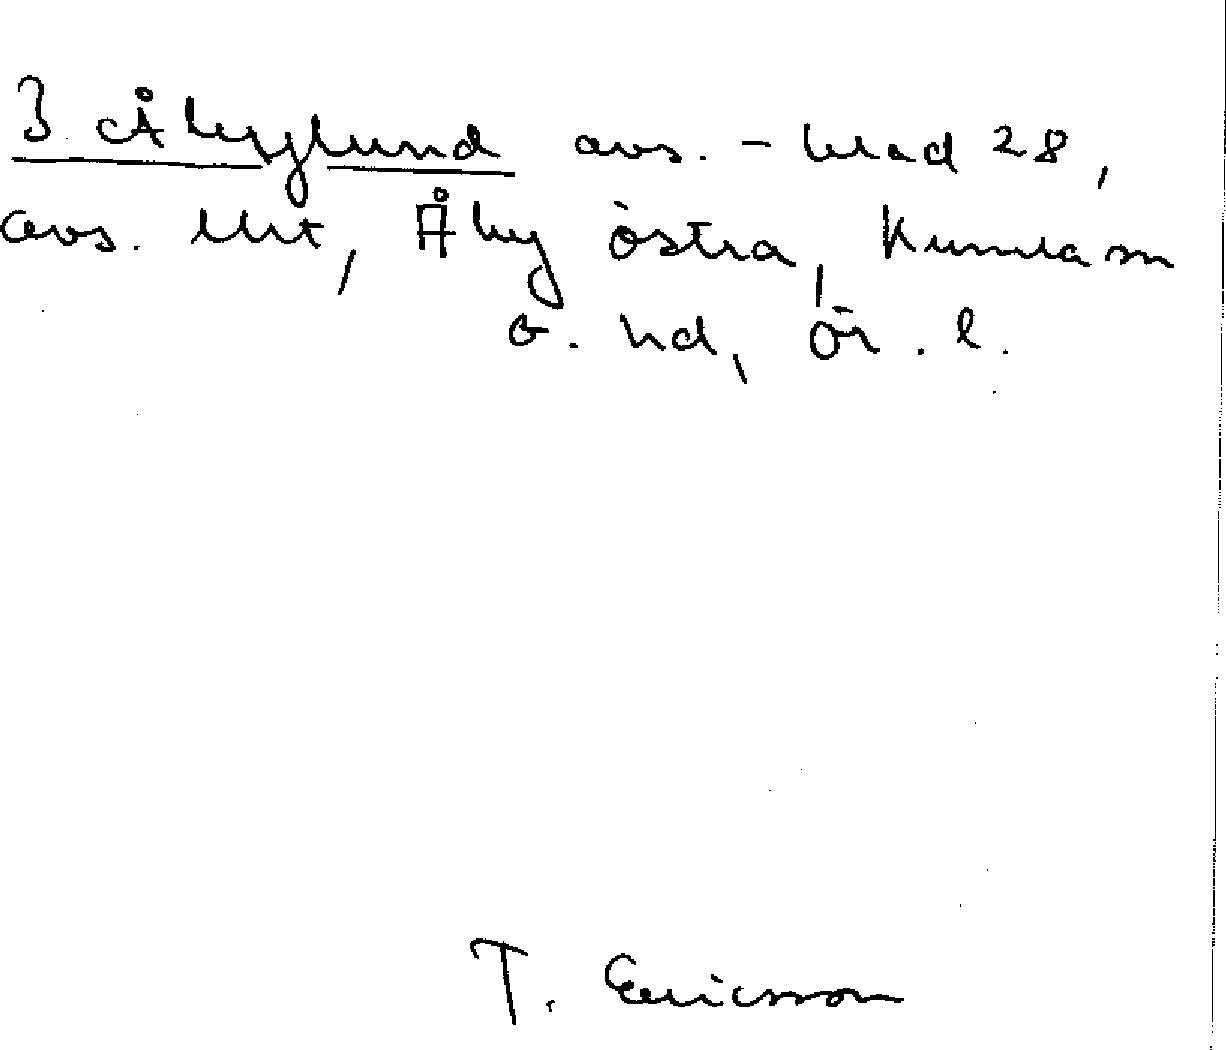 3 Åbyglund avs. - blad 28,
avs. litt, Åby östra, Kumla sn
o. hd, Ör. l.
T. Ericsson